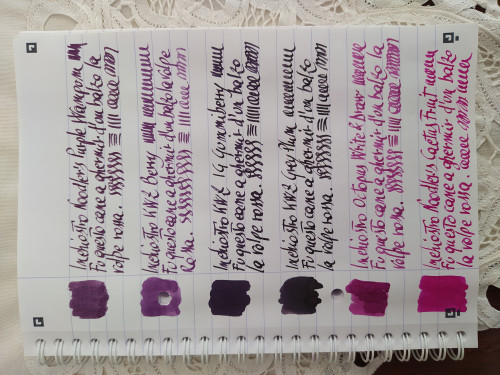 Inchiostro Noodlers Purple Wampum
Fu questo cane a ghermir d'un balzo la
volpe rossa.
Inchiostro KWZ Berry
Fu questo cane a ghermir d'un balzo la volpe
Rossa.
Inchiostro KWZ IG Gummiberry
Fu questo cane a ghermir d'un balzo
la volpe rossa.
Inchiostro KWZ Grey Plum
Fu questo cane a ghermir d'un balzo
la volpe rossa.
Inchiostro Octopus Write & Draw
Fu questo cane a ghermir d'un balzo la
volpe rossa.
Inchiostro Noodlers Cactus Fruit
Fu questo cane a ghermir d'un balzo
la volpe rossa.